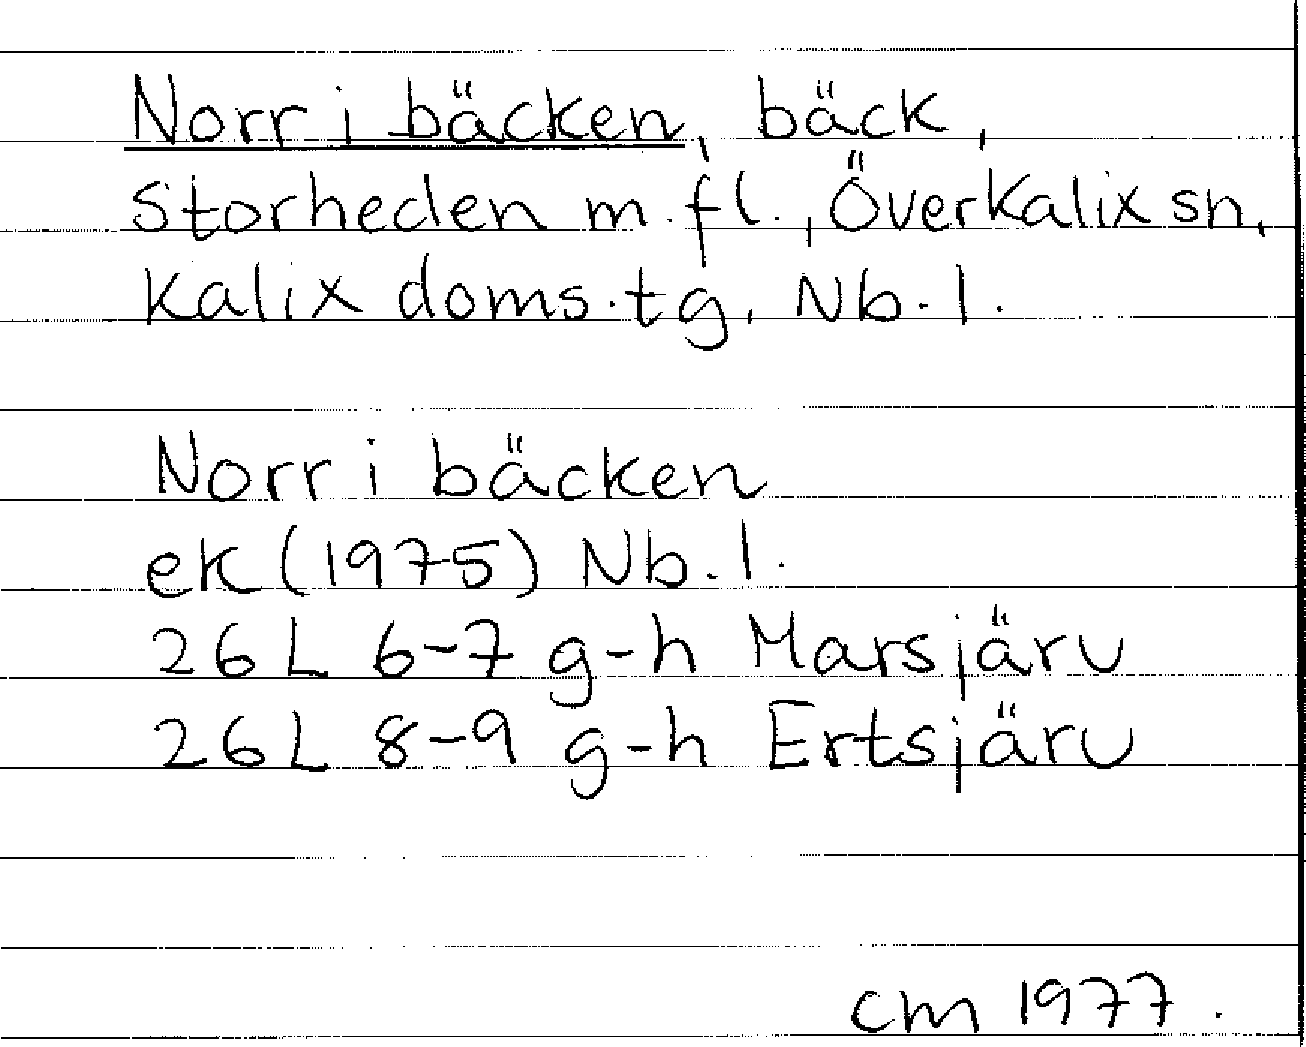 Norr i bäcken, bäck,
Storheden m.fl., Överkalix sn,
Kalix doms.tg, Nb.l.
Norr i bäcken
ek (1975) Nb.l.
26 L 6-7 g-h Marsjärv
26 L 8-9 g-h Ertsjärv
cm 1977.